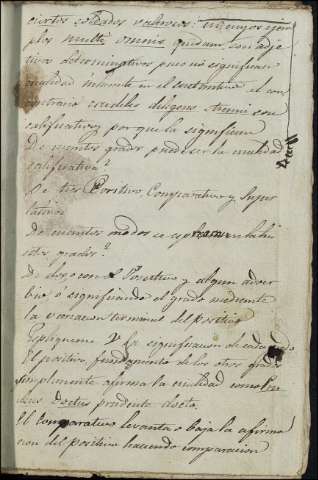 ciertos soldados valerosos: en cuyos ejem
plos multi omnis quidam son adje
tivos determinativos pues no significan
cualidad inherente en el sustantivo el con
contrario crudeles diligens son
calificativos por que la significan
De cuantos grados puede ser la cualidad
calificativa?
De tres Positivo Comparativo y Super
lativo
De cuantos modos se espresan en latin
estos grados?
De dos o con el Positivo y algun adver
bio, ó significando el grado mediante
la variacion terminal del positivo
Espliqueme V la significacion de cada grado
El positivo, fundamento de los otros grados
simplemente afirma la cualidad como Pru
dens Doctus prudente docto
El comparativo levanta o baja la afirma
cion del positivo haciendo comparacion